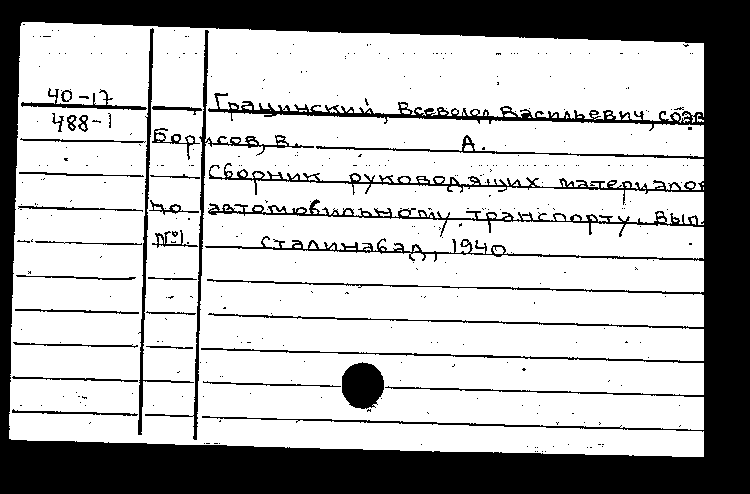 40-17
Грацинский, Всеволод Васильевич, соав
488-1
Борисов, В. А.
Сборник руководящих материалов
по автомобильному транспорту. Вып.
№1. Сталинабад, 1940